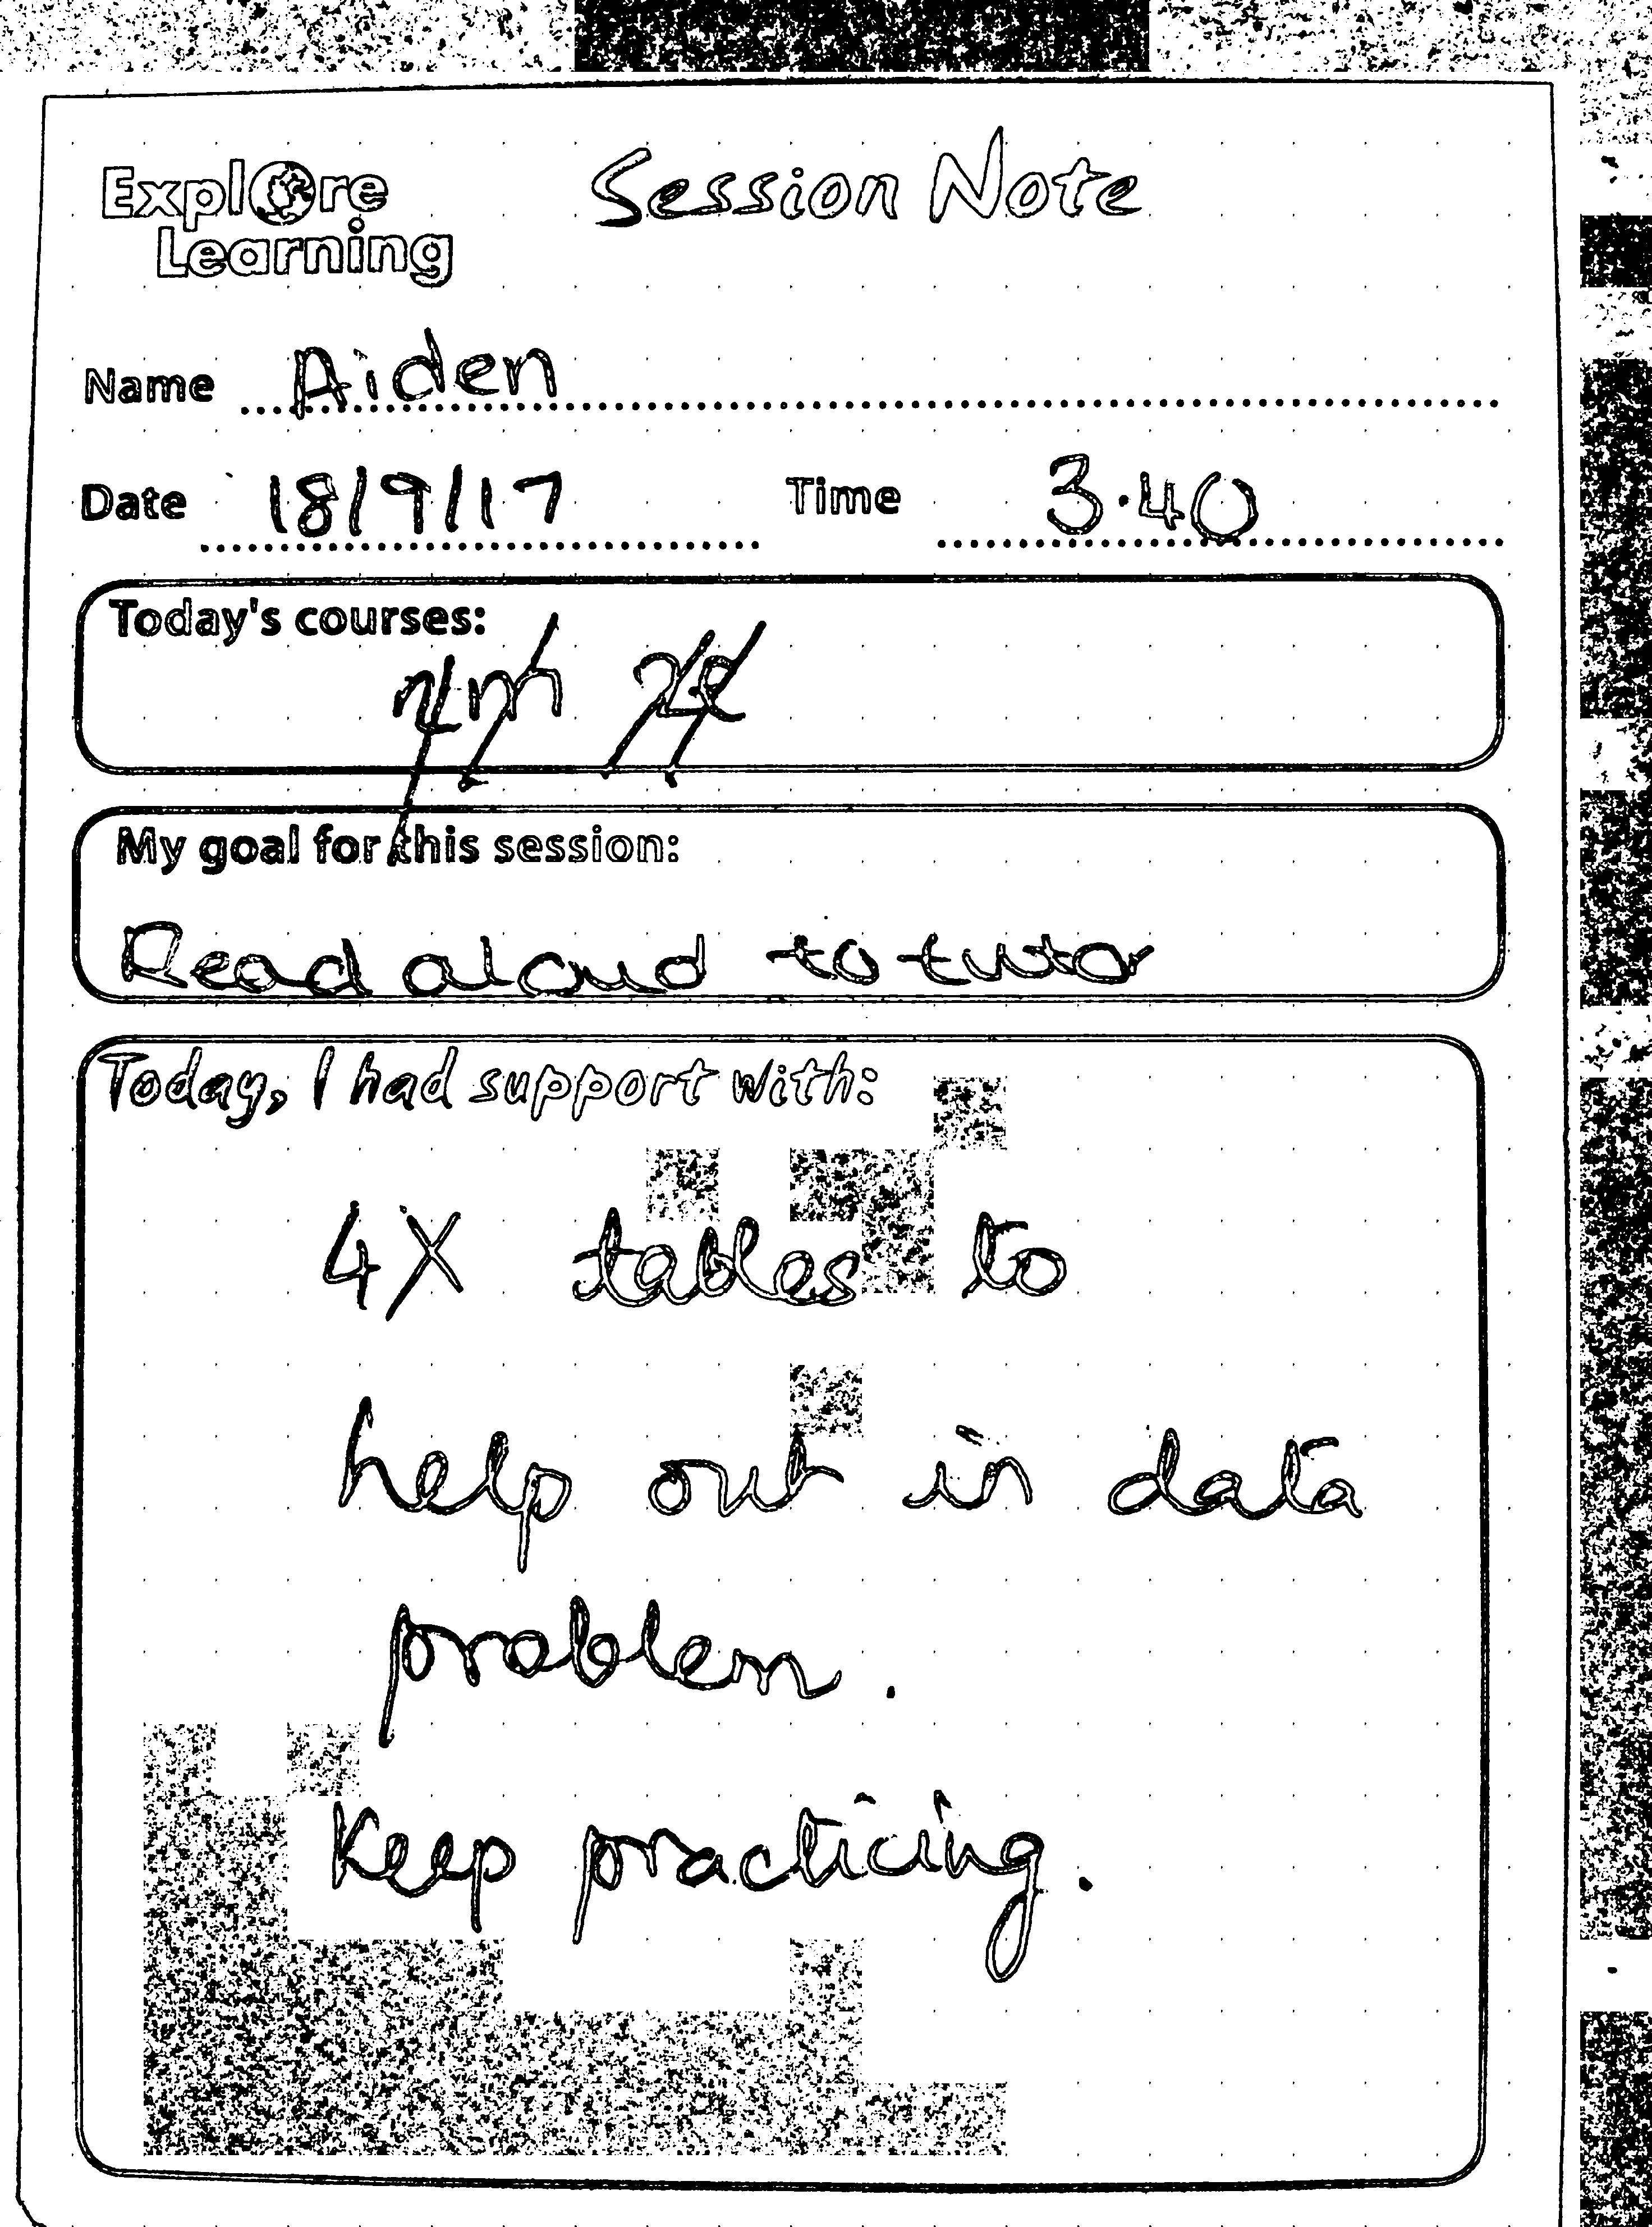 Explore
Learning
Session Note
Name Aiden
Date 18/9/17 Time 3.40
Today's courses:
My goal for this session:
Read aloud to tutor
Today, I had support with:
4X tables to
help out in data
problem.
Keep practicing.